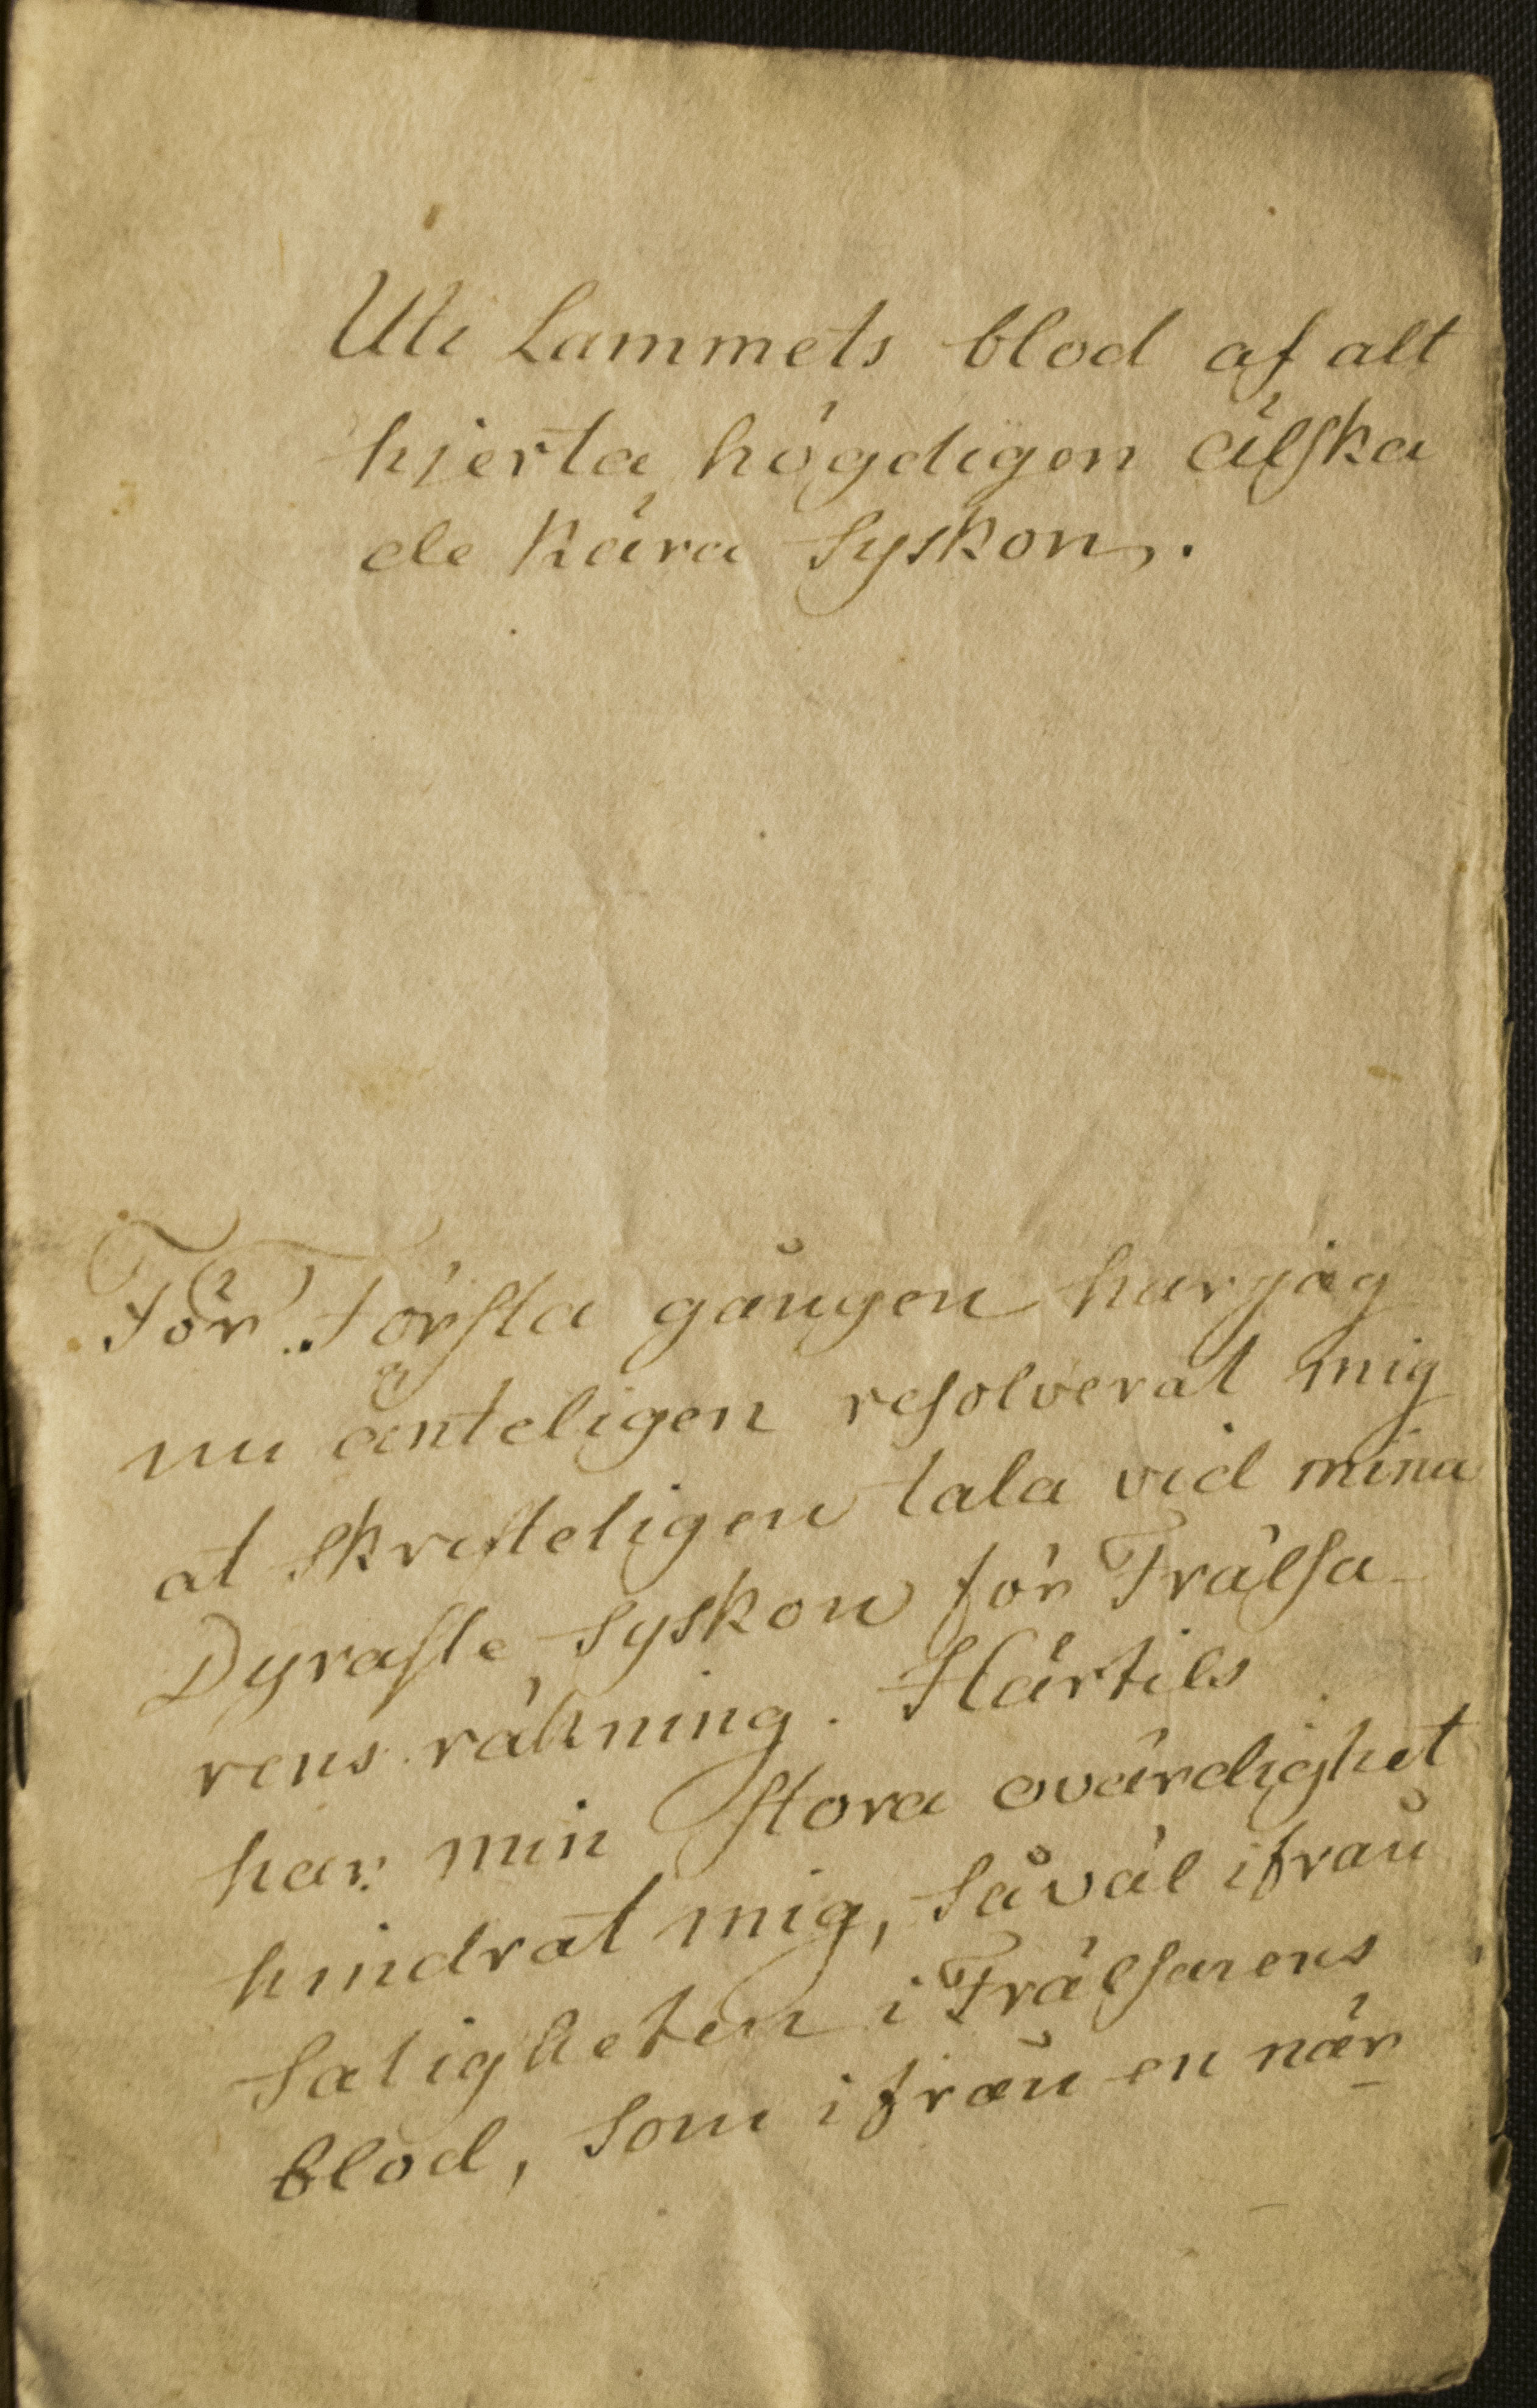 Uti Lammets blod af alt
hjerta högdigen älska
de kära Syskon.
För Första gången har jag
nu änteligen resolverat mig
at skrifteligen tala vid mina
Dyraste Syskon för Frälsa-
rens räkning. Härtils
har min stora ovärdighet
hindrat mig, såväl ifrån
Saligheten i Frälsarens
blod, som ifrån en när